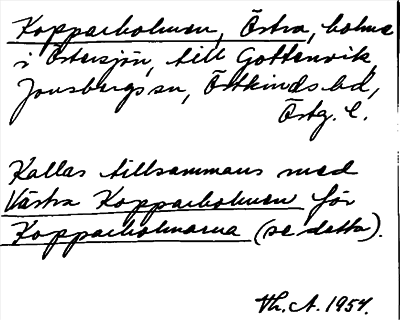 Kopparholmen, Östra, holme
i Östersjön, till Gottenvik
Jonsbergs sn, Östkinds hd,
Östg. l.
Kallas tillsammans med
Västra Kopparholmen för
Kopparholmarna (se detta).
Th. A. 1954.